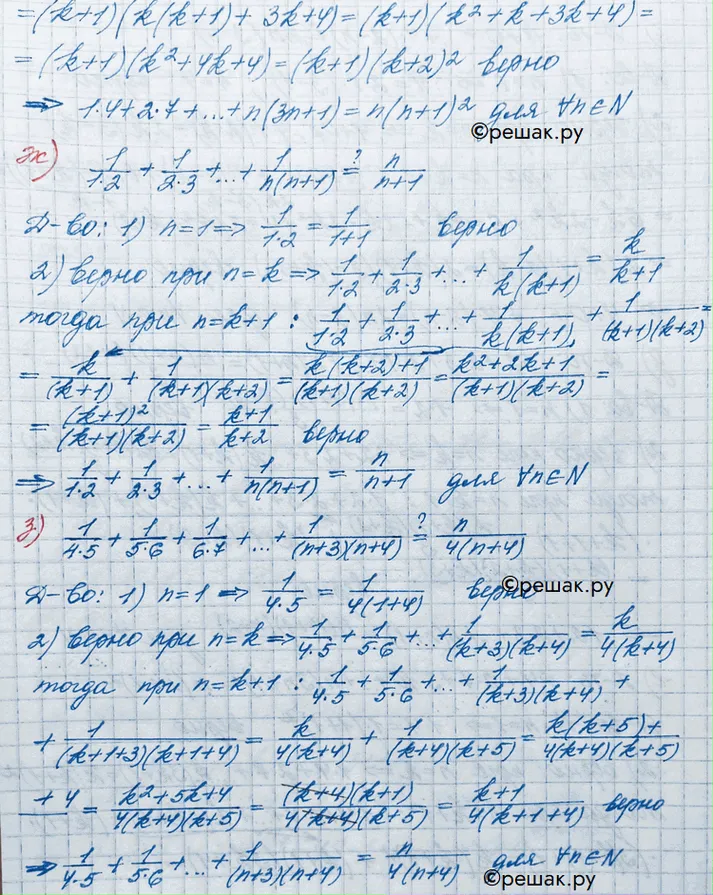 =(k+1)(k(k+1)+3k+4)=(k+1)(k²+k+3k+4)=
=(k+1)(k²+4k+4)=(k+1)(k+2)² верно
=> 1·4+2·7+...+n(3n+1)=n(n+1)² для ∀n∈N
©решак.ру
ж) 1/(1·2) + 1/(2·3) + ... + 1/(n(n+1)) =? n/(n+1)
Д-во: 1) n=1 => 1/(1·2) = 1/(1+1) верно
2) верно при n=k => 1/(1·2) + 1/(2·3) + ... + 1/(k(k+1)) = k/(k+1)
тогда при n=k+1 : 1/(1·2) + 1/(2·3) + ... + 1/(k(k+1)) + 1/((k+1)(k+2)) =
= k/(k+1) + 1/((k+1)(k+2)) = (k(k+2)+1)/((k+1)(k+2)) = (k²+2k+1)/((k+1)(k+2)) =
= (k+1)²/((k+1)(k+2)) = (k+1)/(k+2) верно
=> 1/(1·2) + 1/(2·3) + ... + 1/(n(n+1)) = n/(n+1) для ∀n∈N
з) 1/(4·5) + 1/(5·6) + 1/(6·7) + ... + 1/((n+3)(n+4)) =? n/(4(n+4))
Д-во: 1) n=1 => 1/(4·5) = 1/(4(1+4)) верно
©решак.ру
2) верно при n=k => 1/(4·5) + 1/(5·6) + ... + 1/((k+3)(k+4)) = k/(4(k+4))
тогда при n=k+1 : 1/(4·5) + 1/(5·6) + ... + 1/((k+3)(k+4)) +
+ 1/((k+1+3)(k+1+4)) = k/(4(k+4)) + 1/((k+4)(k+5)) = (k(k+5)+)/(4(k+4)(k+5))
+4 = (k²+5k+4)/(4(k+4)(k+5)) = ((k+4)(k+1))/(4(k+4)(k+5)) = (k+1)/(4(k+1+4)) верно
=> 1/(4·5) + 1/(5·6) + ... + 1/((n+3)(n+4)) = n/(4(n+4)) для ∀n∈N
©решак.ру